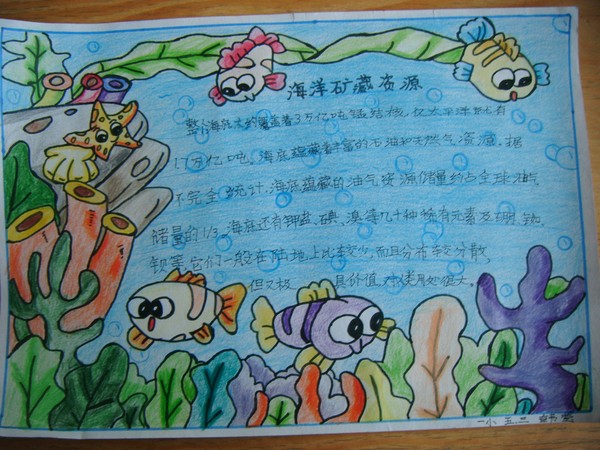 海洋矿藏资源
整个海底大约覆盖着3万亿吨锰结核,仅太平洋就有
1.7万亿吨。海底蕴藏着丰富的石油和天然气资源。据
不完全统计,海底蕴藏的油气资源储量约占全球油气
储量的1/3。海底还有钾盐、碘、溴等几十种稀有元素及硼、铷、
钡等,它们一般在陆地上比较少,而且分布较分散,
但又极具价值,对
一小 五.二